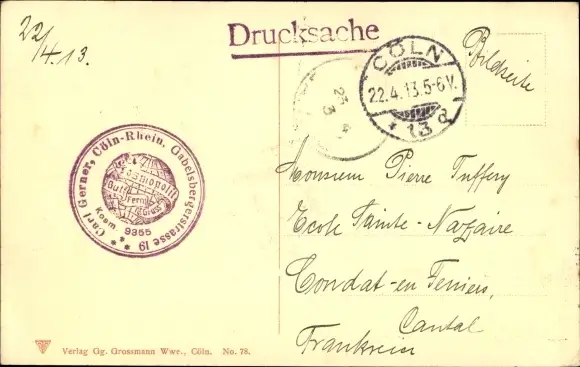 22/4.13.
Drucksache
CÖLN
22.4.13.5-6V.
* 13 d
Bildseite
23 4
3
Carl Gerner, Cöln-Rhein. Gabelsbergerstrasse 19
Kosmopolit
Gut
Fern
Gruss
Kosm. 9355
Monsieur Pierre Tuffery
Ecole Sainte-Nazaire
Condat-en Feniers,
Cantal
Frankreich
Verlag Gg. Grossmann Wwe., Cöln. No. 78.